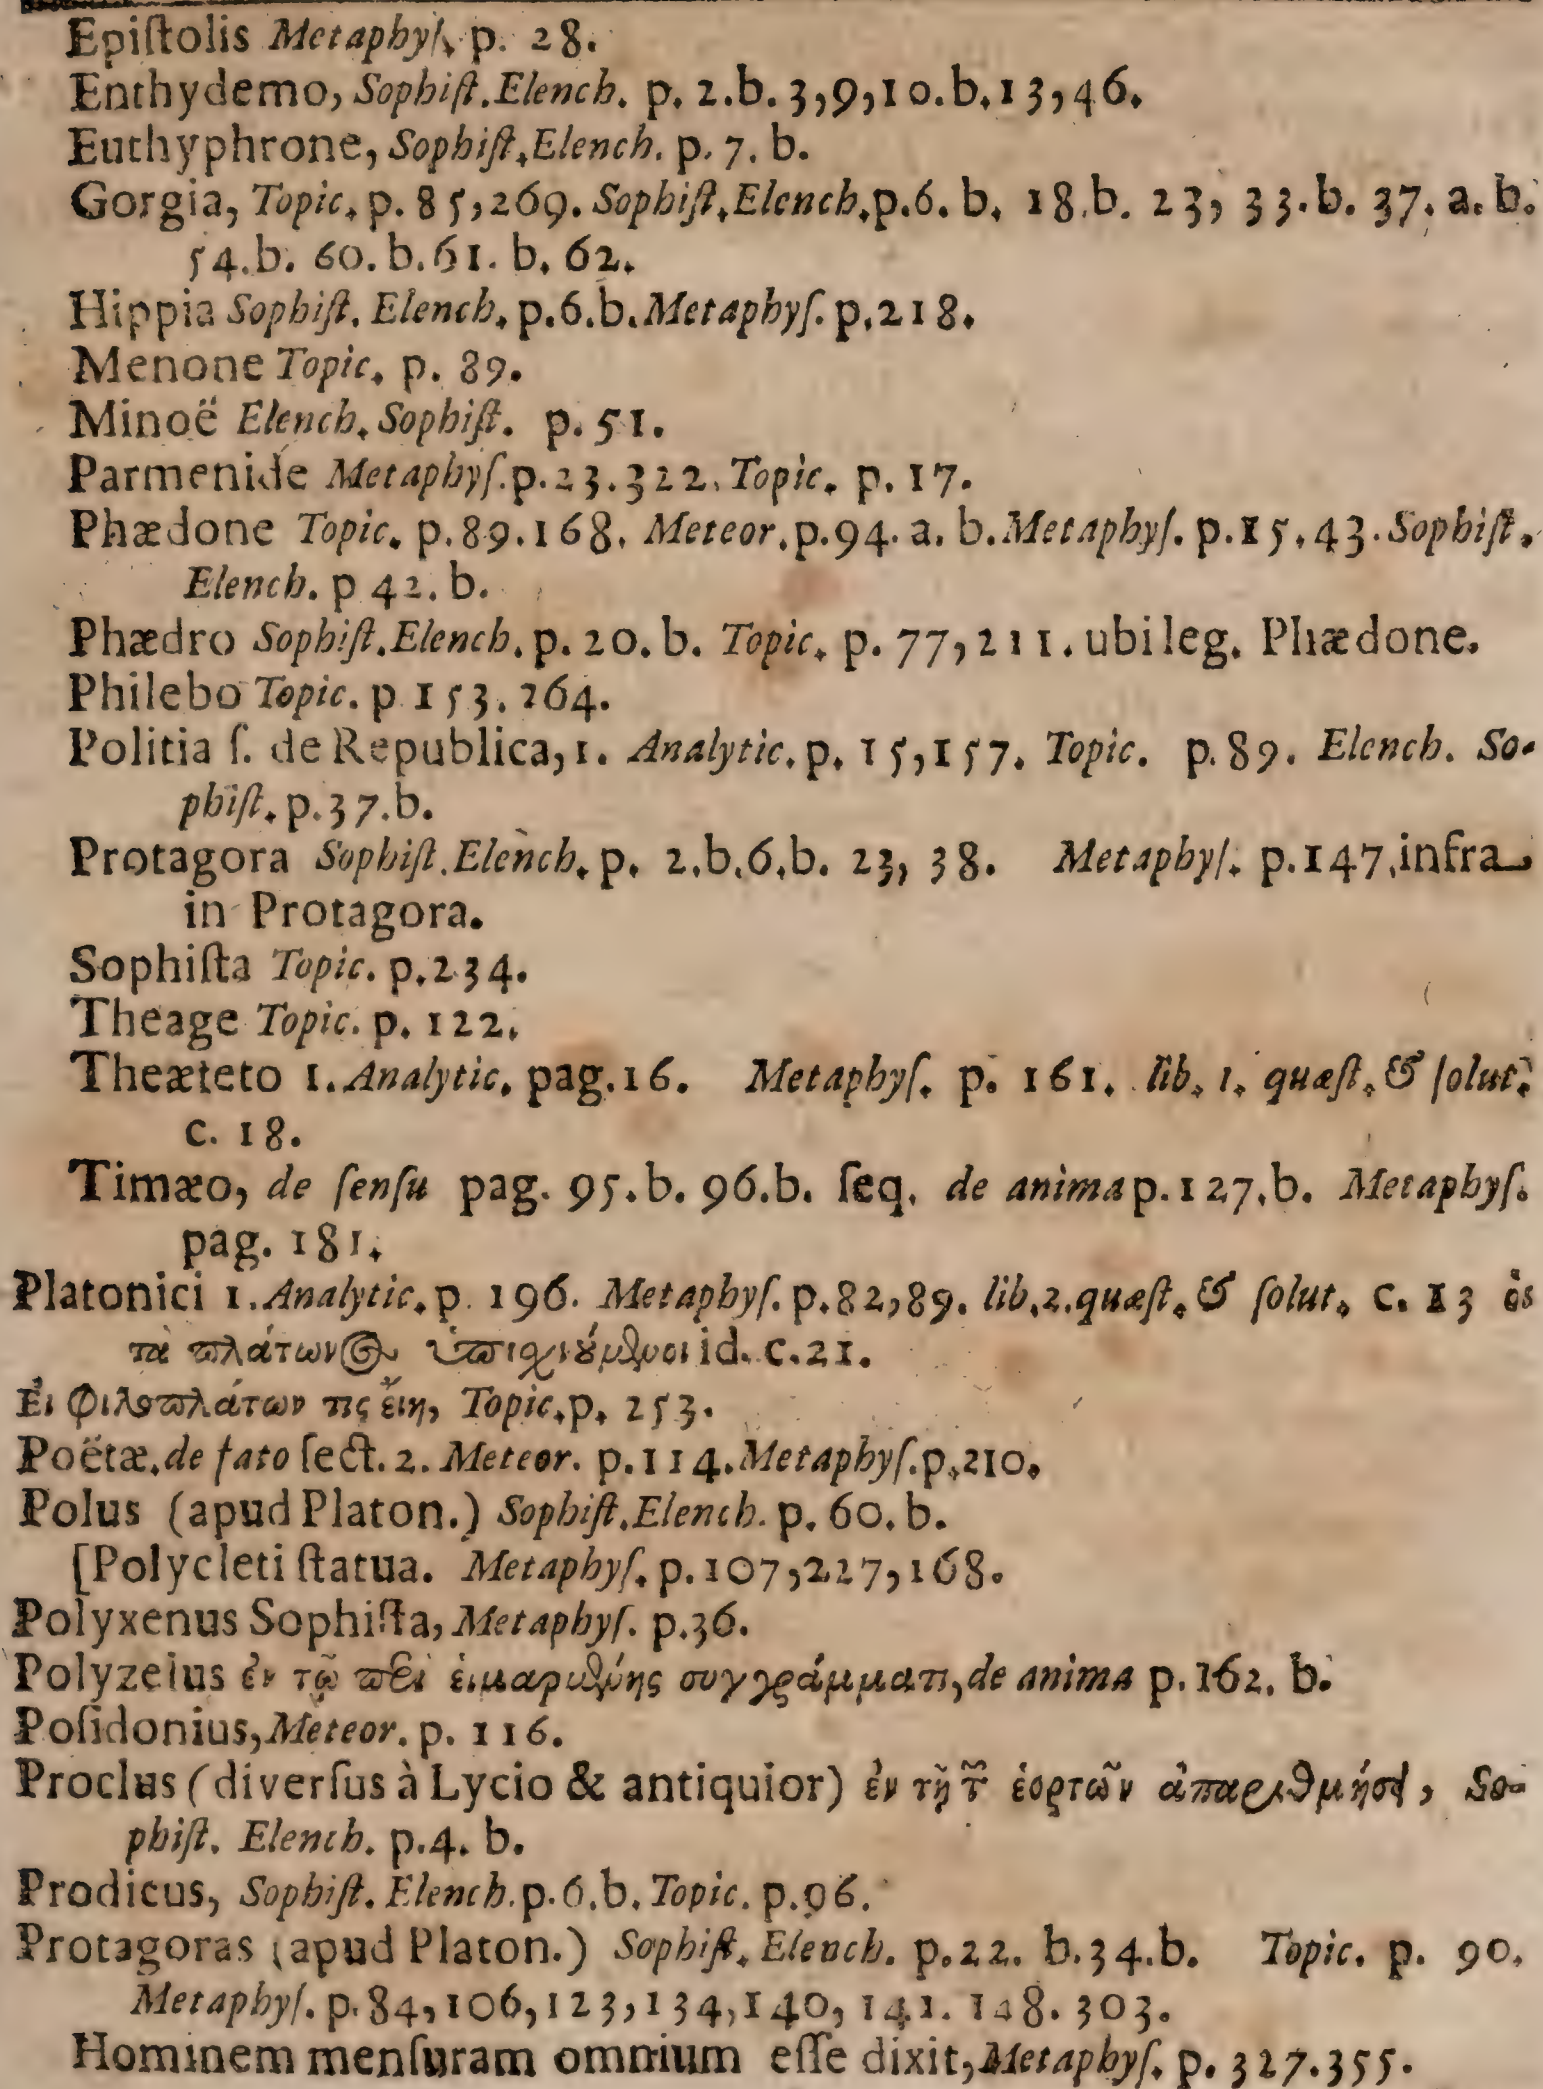 Epiſtolis Metaphyſ. p. 28.
Enthydemo, Sophiſt. Elench. p. 2.b. 3,9,10.b.13,46.
Euthyphrone, Sophiſt. Elench. p. 7. b.
Gorgia, Topic. p. 85,269. Sophiſt. Elench. p.6. b. 18.b. 23, 33.b. 37. a. b.
54.b. 60. b.61. b. 62.
Hippia Sophiſt. Elench. p.6.b. Metaphyſ. p.218.
Menone Topic. p. 89.
Minoë Elench. Sophiſt. p. 51.
Parmenide Metaphyſ. p.23.322. Topic. p. 17.
Phædone Topic. p.89.168. Meteor. p.94. a. b. Metaphyſ. p.15.43. Sophiſt.
Elench. p 42. b.
Phædro Sophiſt. Elench. p. 20. b. Topic. p. 77,211. ubi leg. Phædone.
Philebo Topic. p 153. 264.
Politia ſ. de Republica, 1. Analytic. p. 15,157. Topic. p. 89. Elench. So-
phiſt. p.37.b.
Protagora Sophiſt. Elench. p. 2.b.6.b. 23, 38. Metaphyſ. p.147. infra
in Protagora.
Sophiſta Topic. p.234.
Theage Topic. p. 122.
Theæteto 1. Analytic. pag. 16. Metaphyſ. p. 161. lib. 1. quæſt. & ſolut.
c. 18.
Timæo, de ſenſu pag. 95.b. 96.b. ſeq. de anima p.127.b. Metaphyſ.
pag. 181.
Platonici 1. Analytic. p 196. Metaphyſ. p.82,89. lib.2. quæſt. & ſolut. c. 13
τὰ πλάτων&ος id. c.21.
Εἰ φιλοπλάτων τις εἴη, Topic. p. 253.
Poëtæ. de fato ſect. 2. Meteor. p.114. Metaphyſ. p.210.
Polus (apud Platon.) Sophiſt. Elench. p. 60. b.
[Polycleti ſtatua. Metaphyſ. p. 107,227,168.
Polyxenus Sophiſta, Metaphyſ. p.36.
Polyzelus ἐν τῷ περὶ εἱμαρμένης συγγράμματι, de anima p. 162. b.
Poſidonius, Meteor. p. 116.
Proclus (diverſus à Lycio & antiquior) ἐν τῇ τῶν ἑορτῶν ἀπαριθμήσει, So-
phiſt. Elench. p.4. b.
Prodicus, Sophiſt. Elench. p.6.b. Topic. p.96.
Protagoras (apud Platon.) Sophiſt. Elench. p.22. b.34.b. Topic. p. 90.
Metaphyſ. p. 84,106,123,134,140, 141. 148. 303.
Hominem menſuram omnium eſſe dixit, Metaphyſ. p. 327.355.